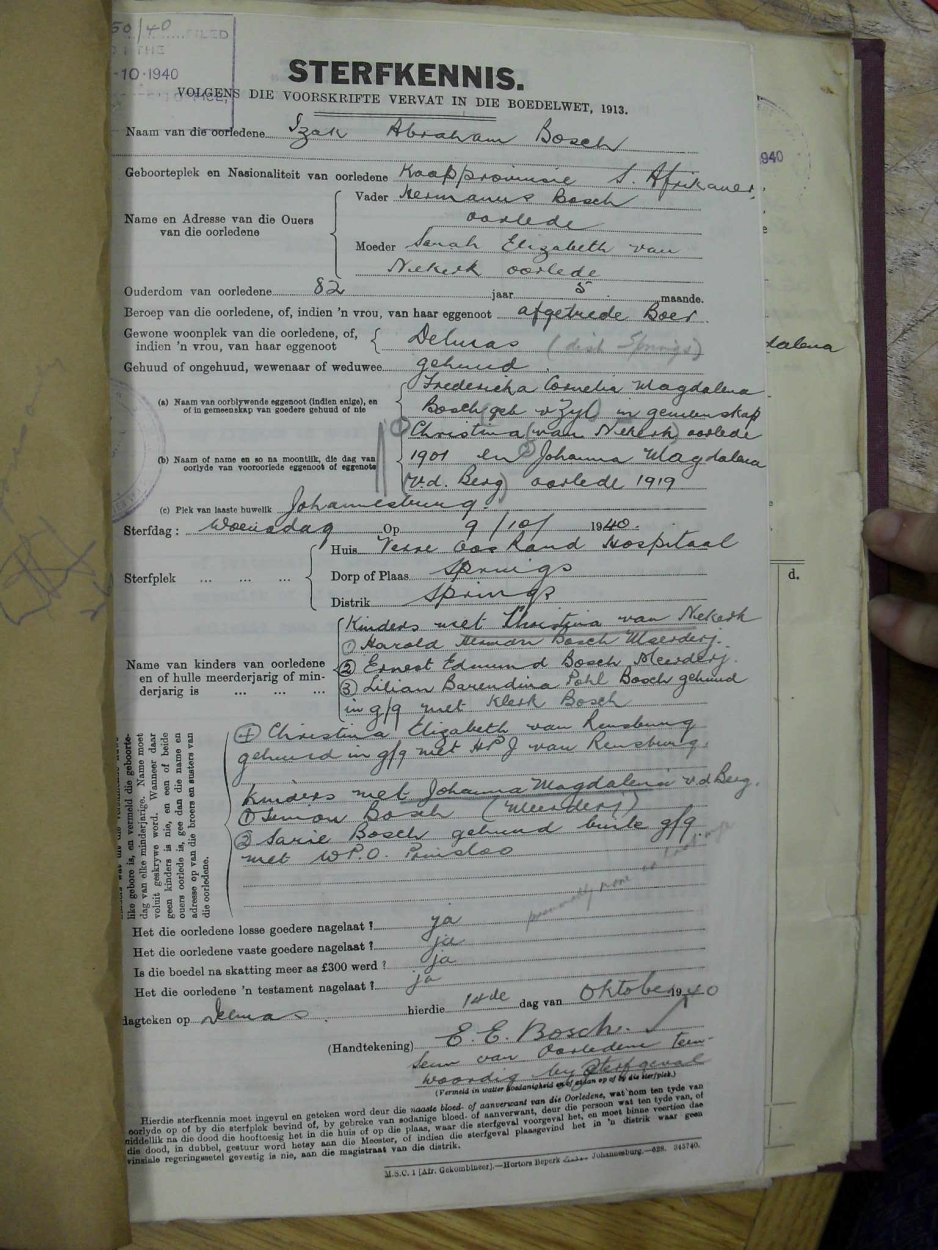 50/40 FILED
THE
-10-1940
STERFKENNIS.
VOLGENS DIE VOORSKRIFTE VERVAT IN DIE BOEDELWET, 1913.
Naam van die oorledene Izak Abraham Bosch
Geboorteplek en Nasionaliteit van oorledene Kaapprovinsie S. Afrikaner.
Name en Adresse van die Ouers van die oorledene
Vader Hermanus Bosch
oorlede
Moeder Sarah Elizabeth van
Niekerk oorlede
Ouderdom van oorledene 82 jaar 5 maande.
Beroep van die oorledene, of, indien 'n vrou, van haar eggenoot afgetrede Boer
Gewone woonplek van die oorledene, of,
indien 'n vrou, van haar eggenoot Delmas (dist Springs)
Gehuud of ongehuud, wewenaar of weduwee gehuud.
(a) Naam van oorblywende eggenoot (indien enige), en
of in gemeenskap van goedere gehuud of nie
Fredericka Cornelia Magdalena
Bosch (geb v Zyl) in gemeenskap
(b) Naam of name en so na moontlik, die dag van
oorlyde van vooroorlede eggenoot of eggenote
① Christina (van Niekerk) oorlede
1901 en ② Johanna Magdalena
(v.d. Berg) oorlede 1919
(c) Plek van laaste huwelik Johannesburg.
Sterfdag: Woensdag Op 9/10/ 1940.
Sterfplek ... ... ...
Huis Verre Oos Rand Hospitaal
Dorp of Plaas Springs
Distrik Springs
Name van kinders van oorledene
en of hulle meerderjarig of min-
derjarig is ... ... ...
Kinders met Christina van Niekerk
① Harold Herman Bosch Meerderj.
② Ernest Edmund Bosch Meerderj.
③ Lilian Barendina Pohl Bosch gehuud
in g/g met Klerk Bosch
④ Christina Elizabeth van Rensburg
gehuud in g/g met H.P.J van Rensburg.
Kinders met Johanna Magdalena v.d Berg.
① Simon Bosch (Meerderj)
② Sarie Bosch gehuud buite g/g.
met W.P.O. Prinsloo
like gebore is, en vermeld die geboorte-
dag van elke minderjarige. Name moet
voluit geskrywe word. Wanneer daar
geen kinders is nie, en een of beide
ouers oorlede is, gee dan die name en
adresse op van die broers en susters van
die oorledene.
Het die oorledene losse goedere nagelaat? ja
Het die oorledene vaste goedere nagelaat? ja
Is die boedel na skatting meer as £300 werd? ja
Het die oorledene 'n testament nagelaat? ja
dagteken op Delmas. hierdie 14de dag van Oktober 1940
(Handtekening) E. E. Bosch.
Seun van Oorledene teen-
woordig by sterfgeval
(Vermeld in watter hoedanigheid en of aldan op of by die sterfplek.)
Hierdie sterfkennis moet ingevul en geteken word deur die naaste bloed- of aanverwant van die Oorledene, wat nom ten tyde van
oorlyde op of by die sterfplek bevind of, by gebreke van sodanige bloed- of aanverwant, deur die persoon wat ten tyde van, of
middellik na die dood die hooftoesig het in die huis of op die plaas, waar die sterfgeval voorgeval het, en moet binne veertien dae
die dood, in dubbel, gestuur word hetsy aan die Meester, of indien die sterfgeval plaasgevind het in 'n distrik waar geen
vinsiale regeringssetel gevestig is nie, aan die magistraat van die distrik.
M.S.C. 1 [Afr. Gekombineer].—Hortors Beperk Johannesburg.—628. 345740.
940
dalena
d.